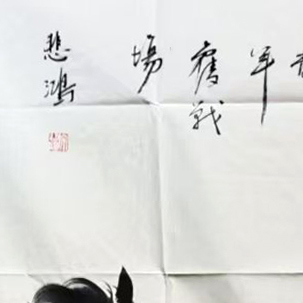 年
舊戰
場
悲鴻